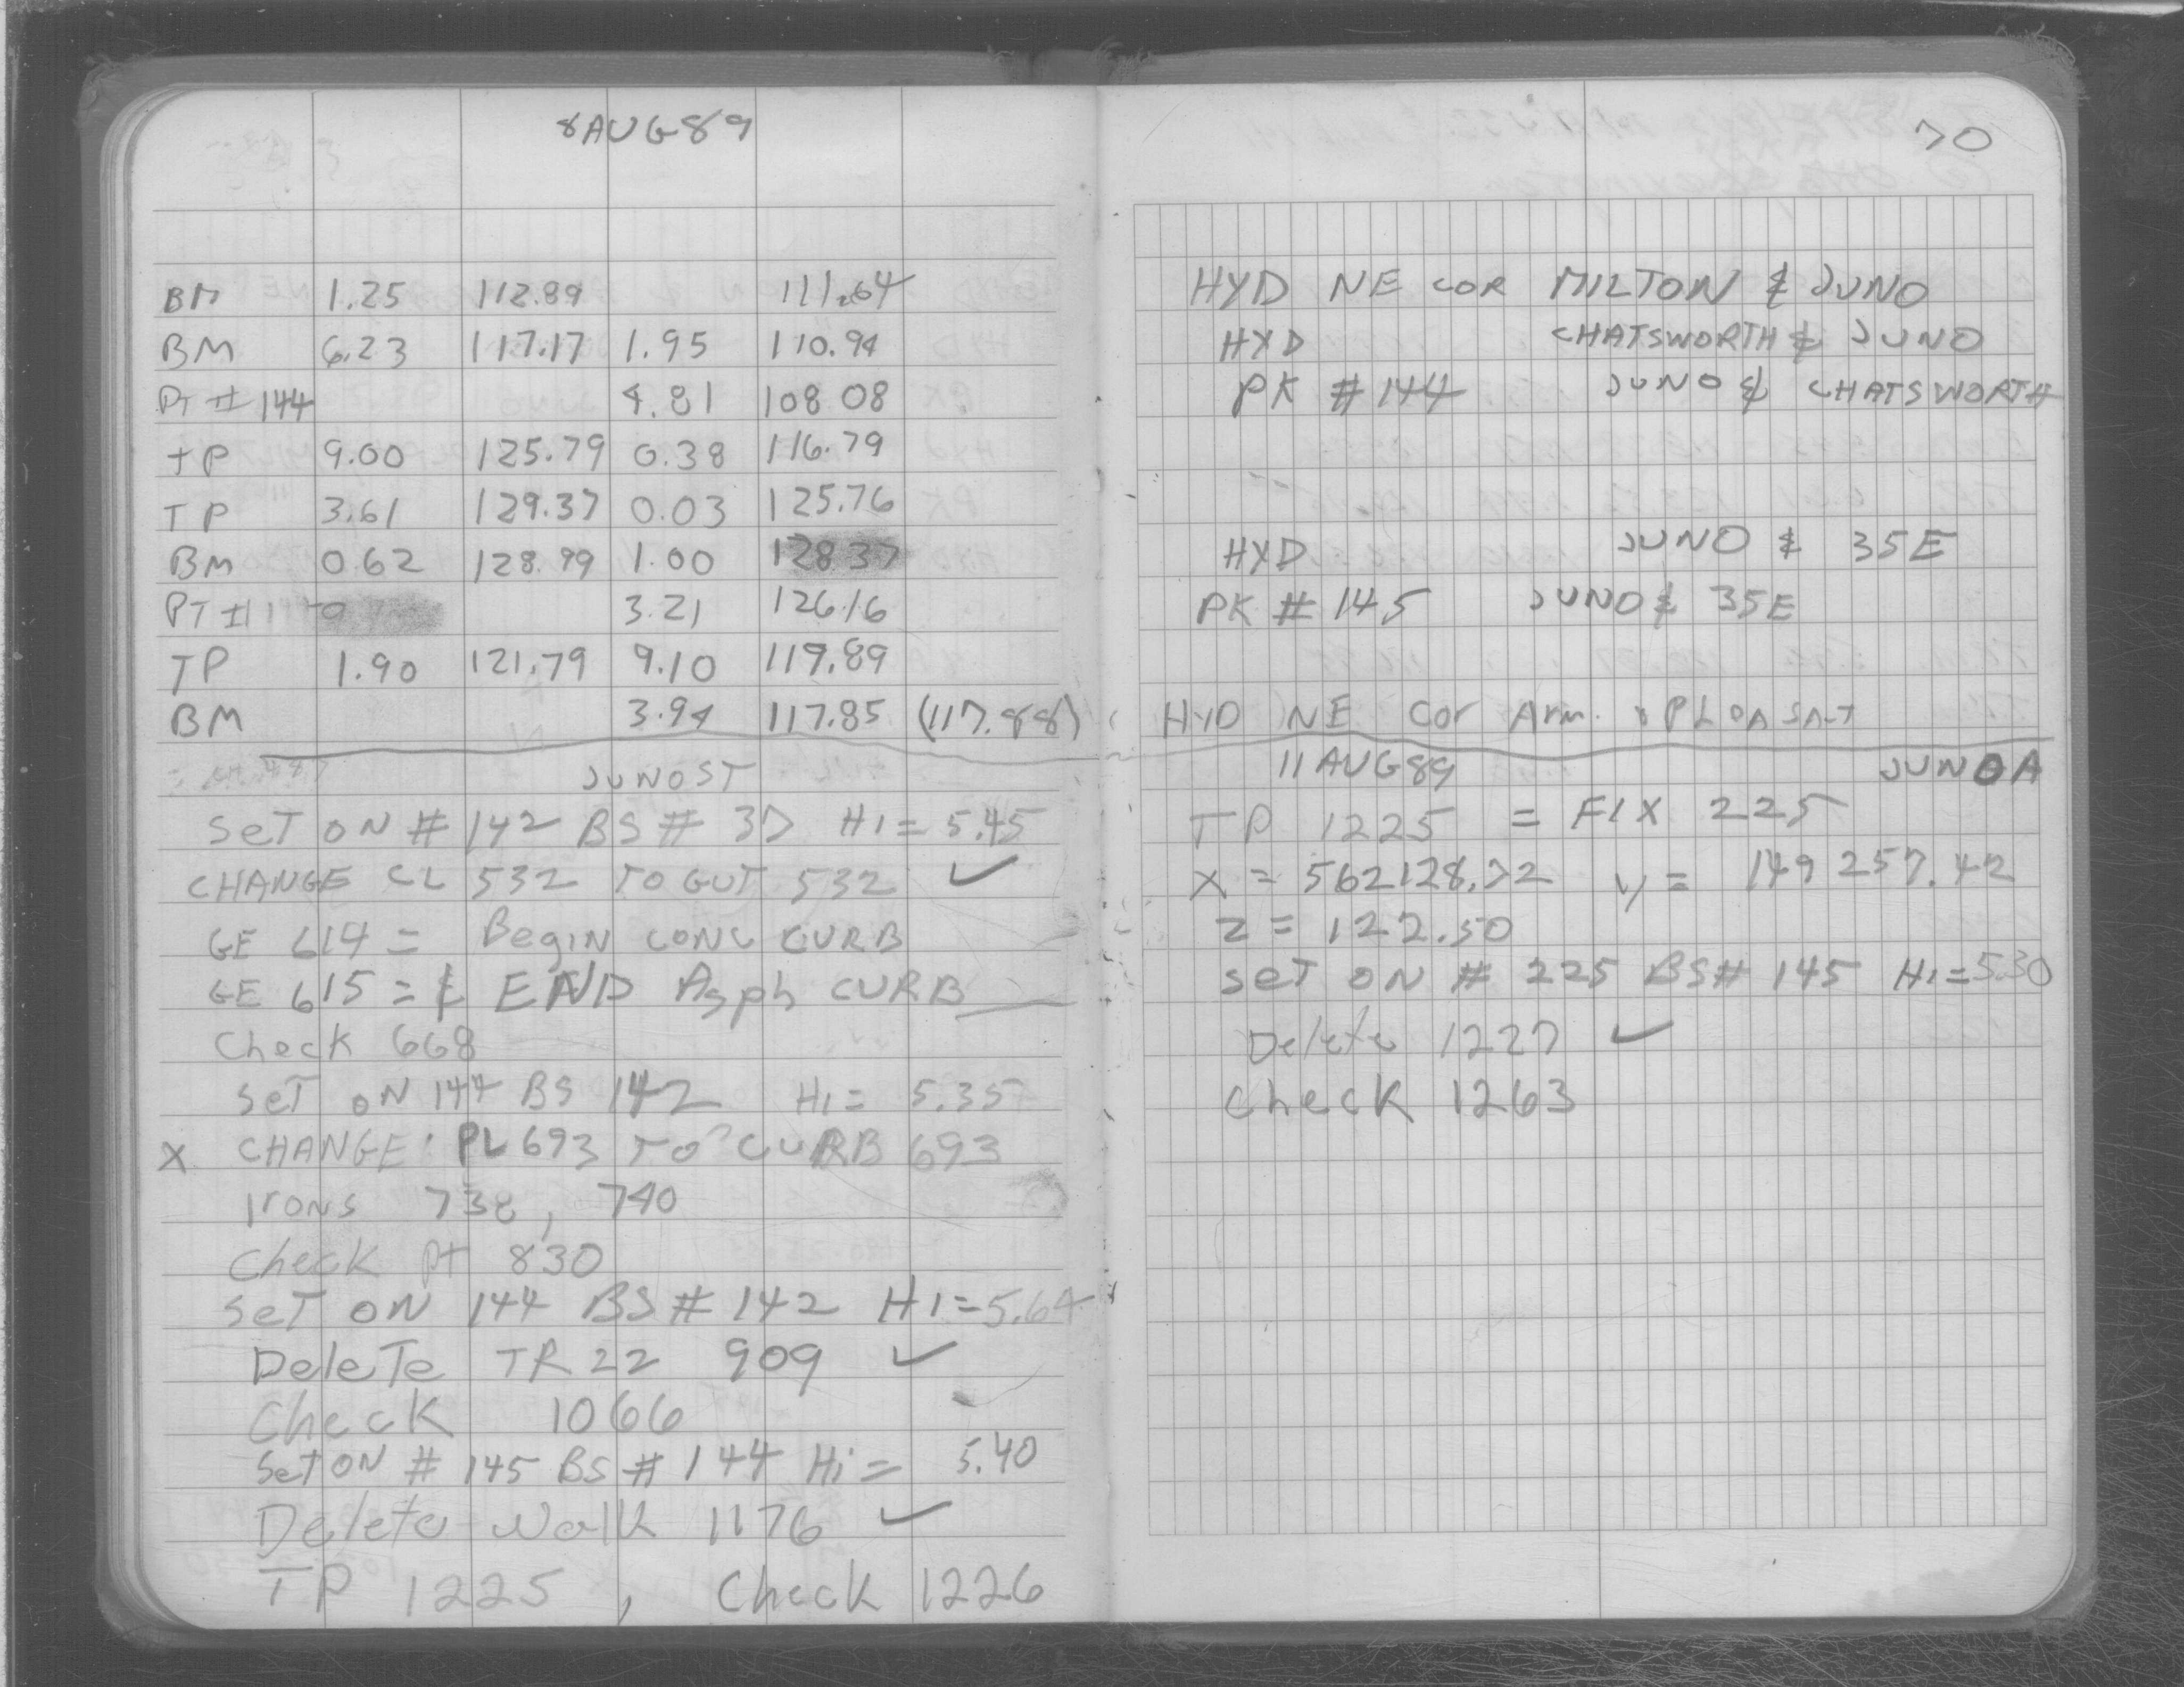 8AUG89
BM 1.25 112.89 111.64
BM 6.23 117.17 1.95 110.94
PT # 144 4.81 108 08
TP 9.00 125.79 0.38 116.79
TP 3.61 129.37 0.03 125.76
BM 0.62 128.99 1.00 128 37
PT # 3.21 126.16
TP 1.90 121.79 9.10 119.89
BM 3.94 117.85 (117.88)
JUNOST
SeT ON # 142 BS # 37 HI = 5.45
CHANGE CL 532 TO GUT 532 ✓
GE 614 = Begin CONC CURB
GE 615 = & END Asph CURB
Check 668
SeT ON 144 BS 142 HI = 5.35
X CHANGE PL 693 TO CURB 693
Irons 738, 740
Check pt 830
SeT ON 144 BS # 142 HI = 5.64
DeleTe TR 22 909 ✓
Check 1066
SeT ON # 145 BS # 144 Hi = 5.40
Delete Walk 1176 ✓
TP 1225, Check 1226
70
HYD NE COR MILTON & JUNO
HYD CHATSWORTH & JUNO
PK # 144 JUNO & CHATSWORTH
HYD JUNO & 35E
PK # 145 JUNO & 35E
HYD NE Cor Arm. &
11 AUG89 JUNOA
TP 1225 = FIX 225
X = 562128.72 y = 149 257.42
Z = 122.50
SeT ON # 225 BS# 145 HI = 5.30
Delete 1227 ✓
Check 1263